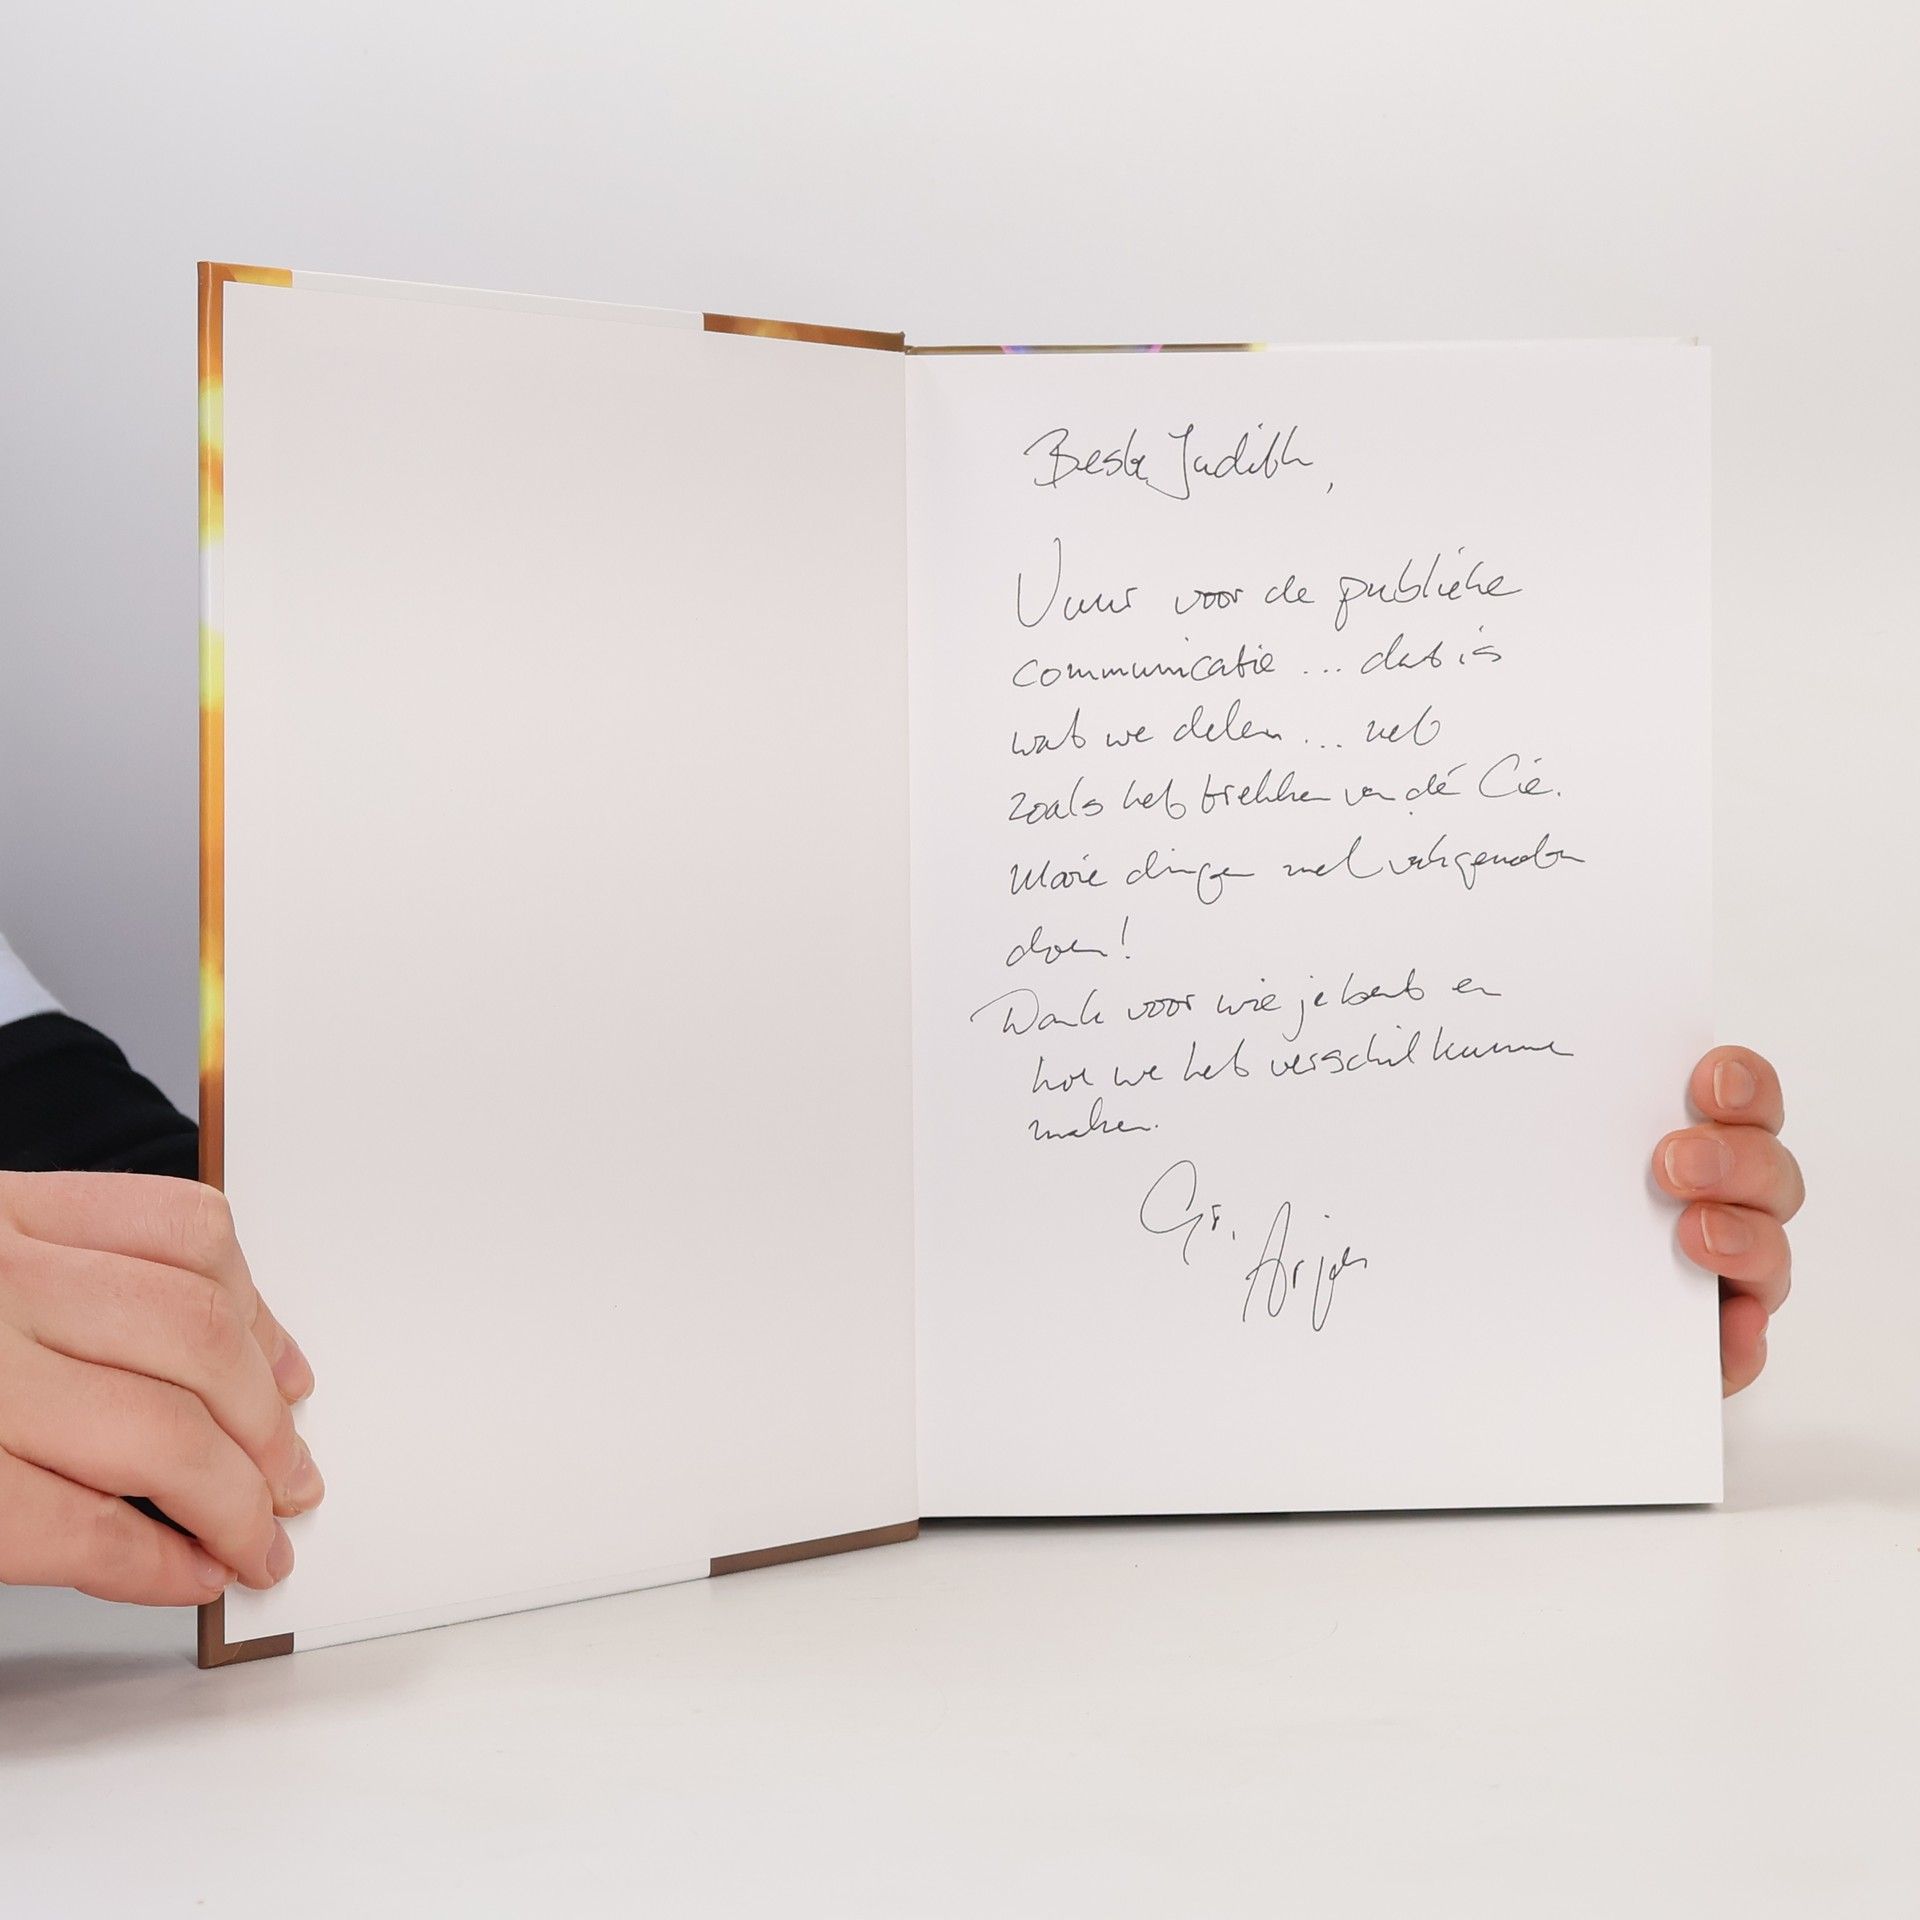 Beste Judith,
Vuur voor de publieke
communicatie ... dat is
wat we delen ... net
zoals het trekken van de Cie.
Mooie dingen met vakgenoten
doen!
Dank voor wie je bent en
hoe we het verschil kunnen
maken.
Gr,
Arjen